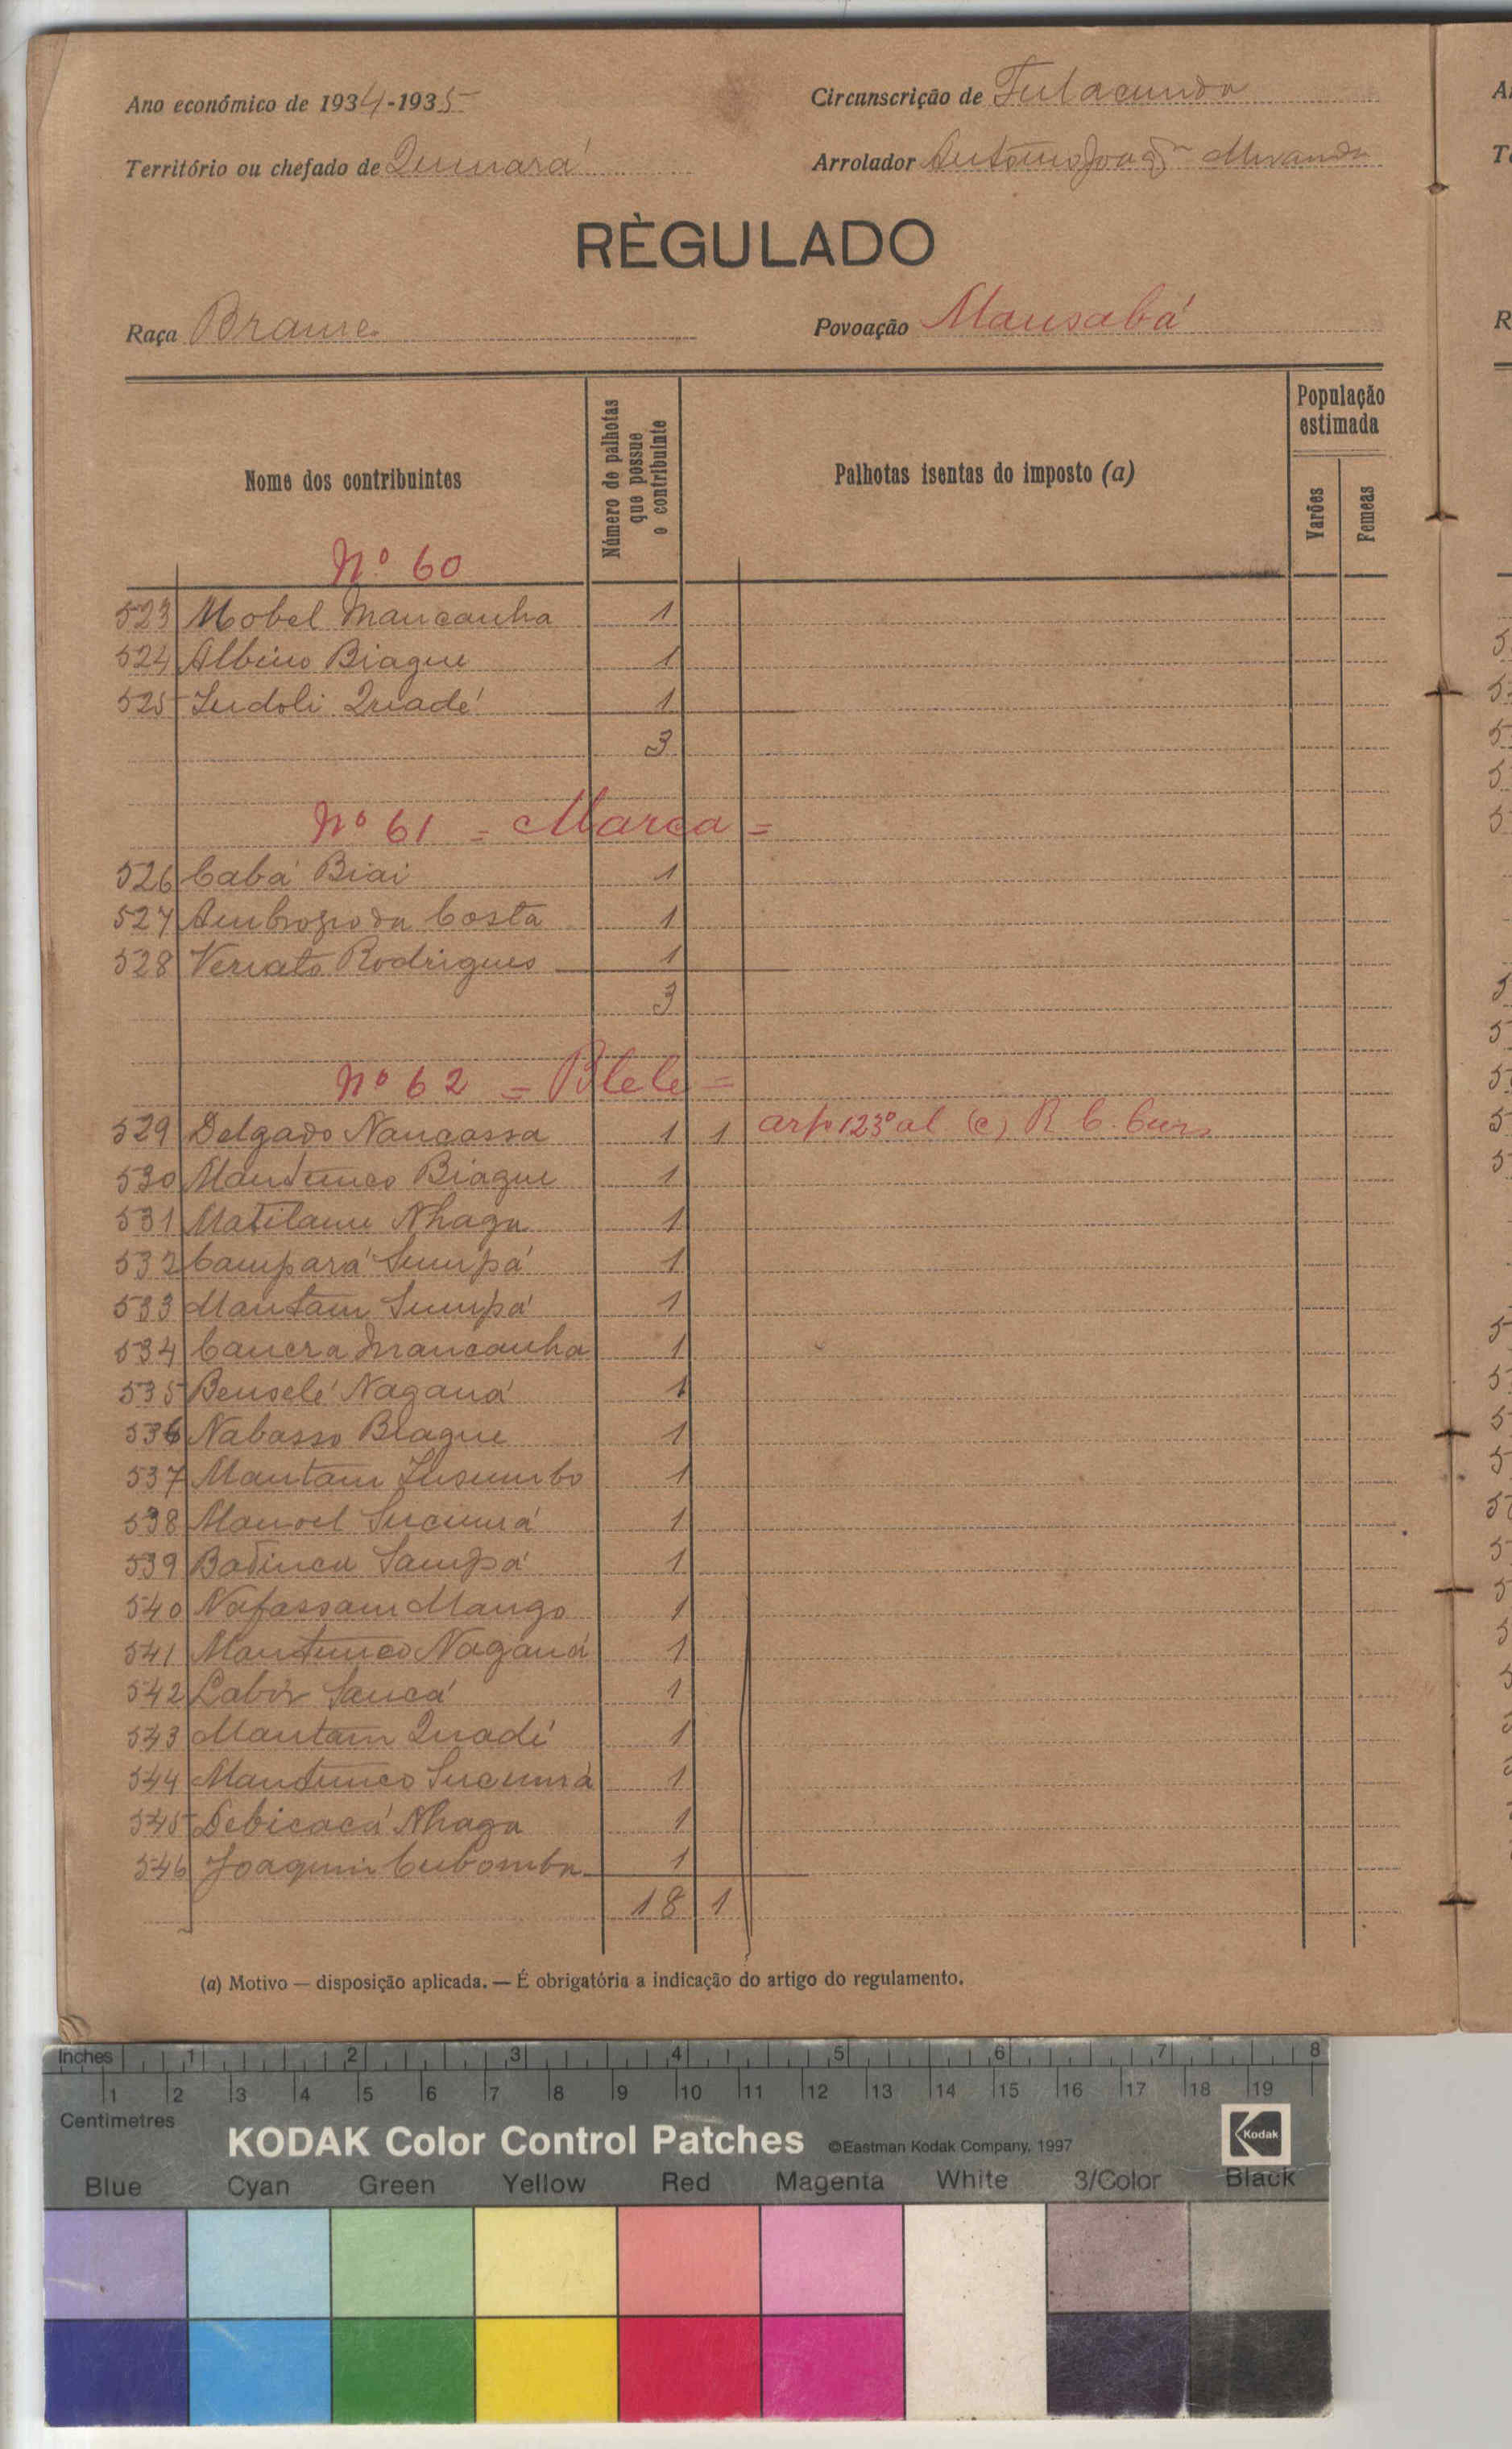 Ano económico de 1934-1935
Circunscrição de Fulacunda
Território ou chefado de Quinará
Arrolador António Joaq.m Miranda
RÈGULADO
Raça Brame
Povoação Mansabá
Nome dos contribuintes
Número de palhotas que possue o contribuinte
Palhotas isentas do imposto (a)
População estimada
Varões
Femeas
Nº 60
523 Mobel Mancanha 1
524 Albino Biague 1
525 Quadé 1
3
Nº 61 = Marca =
526 Cabá Biai 1
527 Ambrozio da Costa 1
528 Veriato Rodrigues 1
3
Nº 62 = Blele =
529 Delgado Nancassa 1 1 artº 123º al (c) R C.
530 Mantunco Biague 1
531 Matilame Nhaga 1
532 Campará Sumpá 1
533 Mantam Sumpá 1
534 Mancanha 1
535 Benselé Naganá 1
536 Nabasso Biague 1
537 Mantam 1
538 Manoel Sucumá 1
539 Batinca Sampá 1
540 Nafassam Mango 1
541 Mantunco Naganá 1
542 Labir Sancá 1
543 Mantam Quadé 1
544 Mantunco Sucumá 1
545 Debicacá Nhaga 1
546 Joaquim Cubomba 1
18 1
(a) Motivo — disposição aplicada. — É obrigatória a indicação do artigo do regulamento.
Inches 1 2 3 4 5 6 7 8
1 2 3 4 5 6 7 8 9 10 11 12 13 14 15 16 17 18 19
Centimetres
KODAK Color Control Patches ©Eastman Kodak Company, 1997 Kodak
Blue Cyan Green Yellow Red Magenta White 3/Color Black